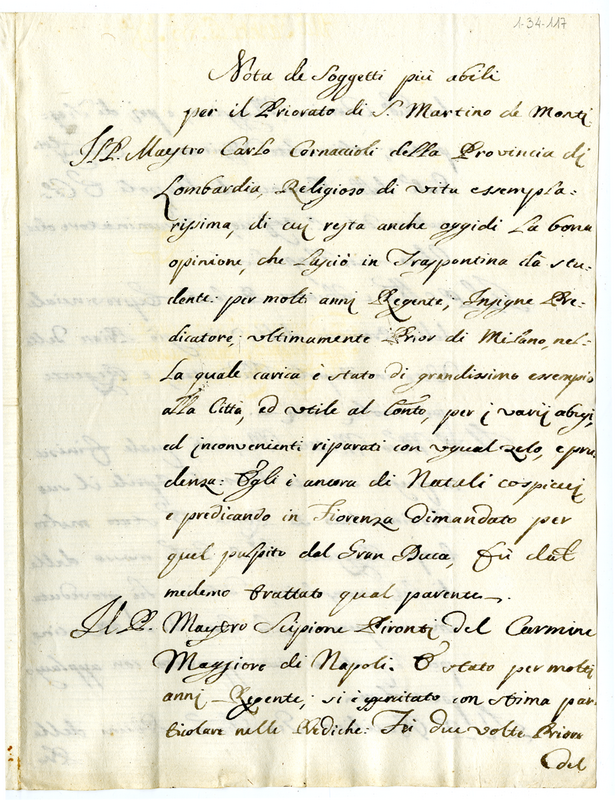 1-34-117
Nota de Soggetti più abili
per il Priorato di S. Martino de Monti
Il P. Maestro Carlo Cornaccioli della Provincia di
Lombardia, Religioso di vita essempla=
rissima, di cui resta anche oggidi la bona
opinione, che lasciò in Traspontina da stu=
dente: per molti anni Regente; Insigne Pre=
dicatore, ultimamente Prior di Milano, nel=
la quale carica è stato di grandissimo essempio
alla Città, ed utile al Conto, per i varij abusi,
ed inconvenienti riparati con ugual zelo, e pru
denza: Egli è ancora di Natali cospicui
e predicando in Fiorenza dimandato per
quel pulpito dal Gran Duca, fù dal
medemo trattato qual parente.
Il P. Maestro Scipione Pironti del Carmine
Maggiore di Napoli. È stato per molti
anni Regente; si è essercitato con stima par
ticolare nelle Prediche: Fù due volte Priore
del